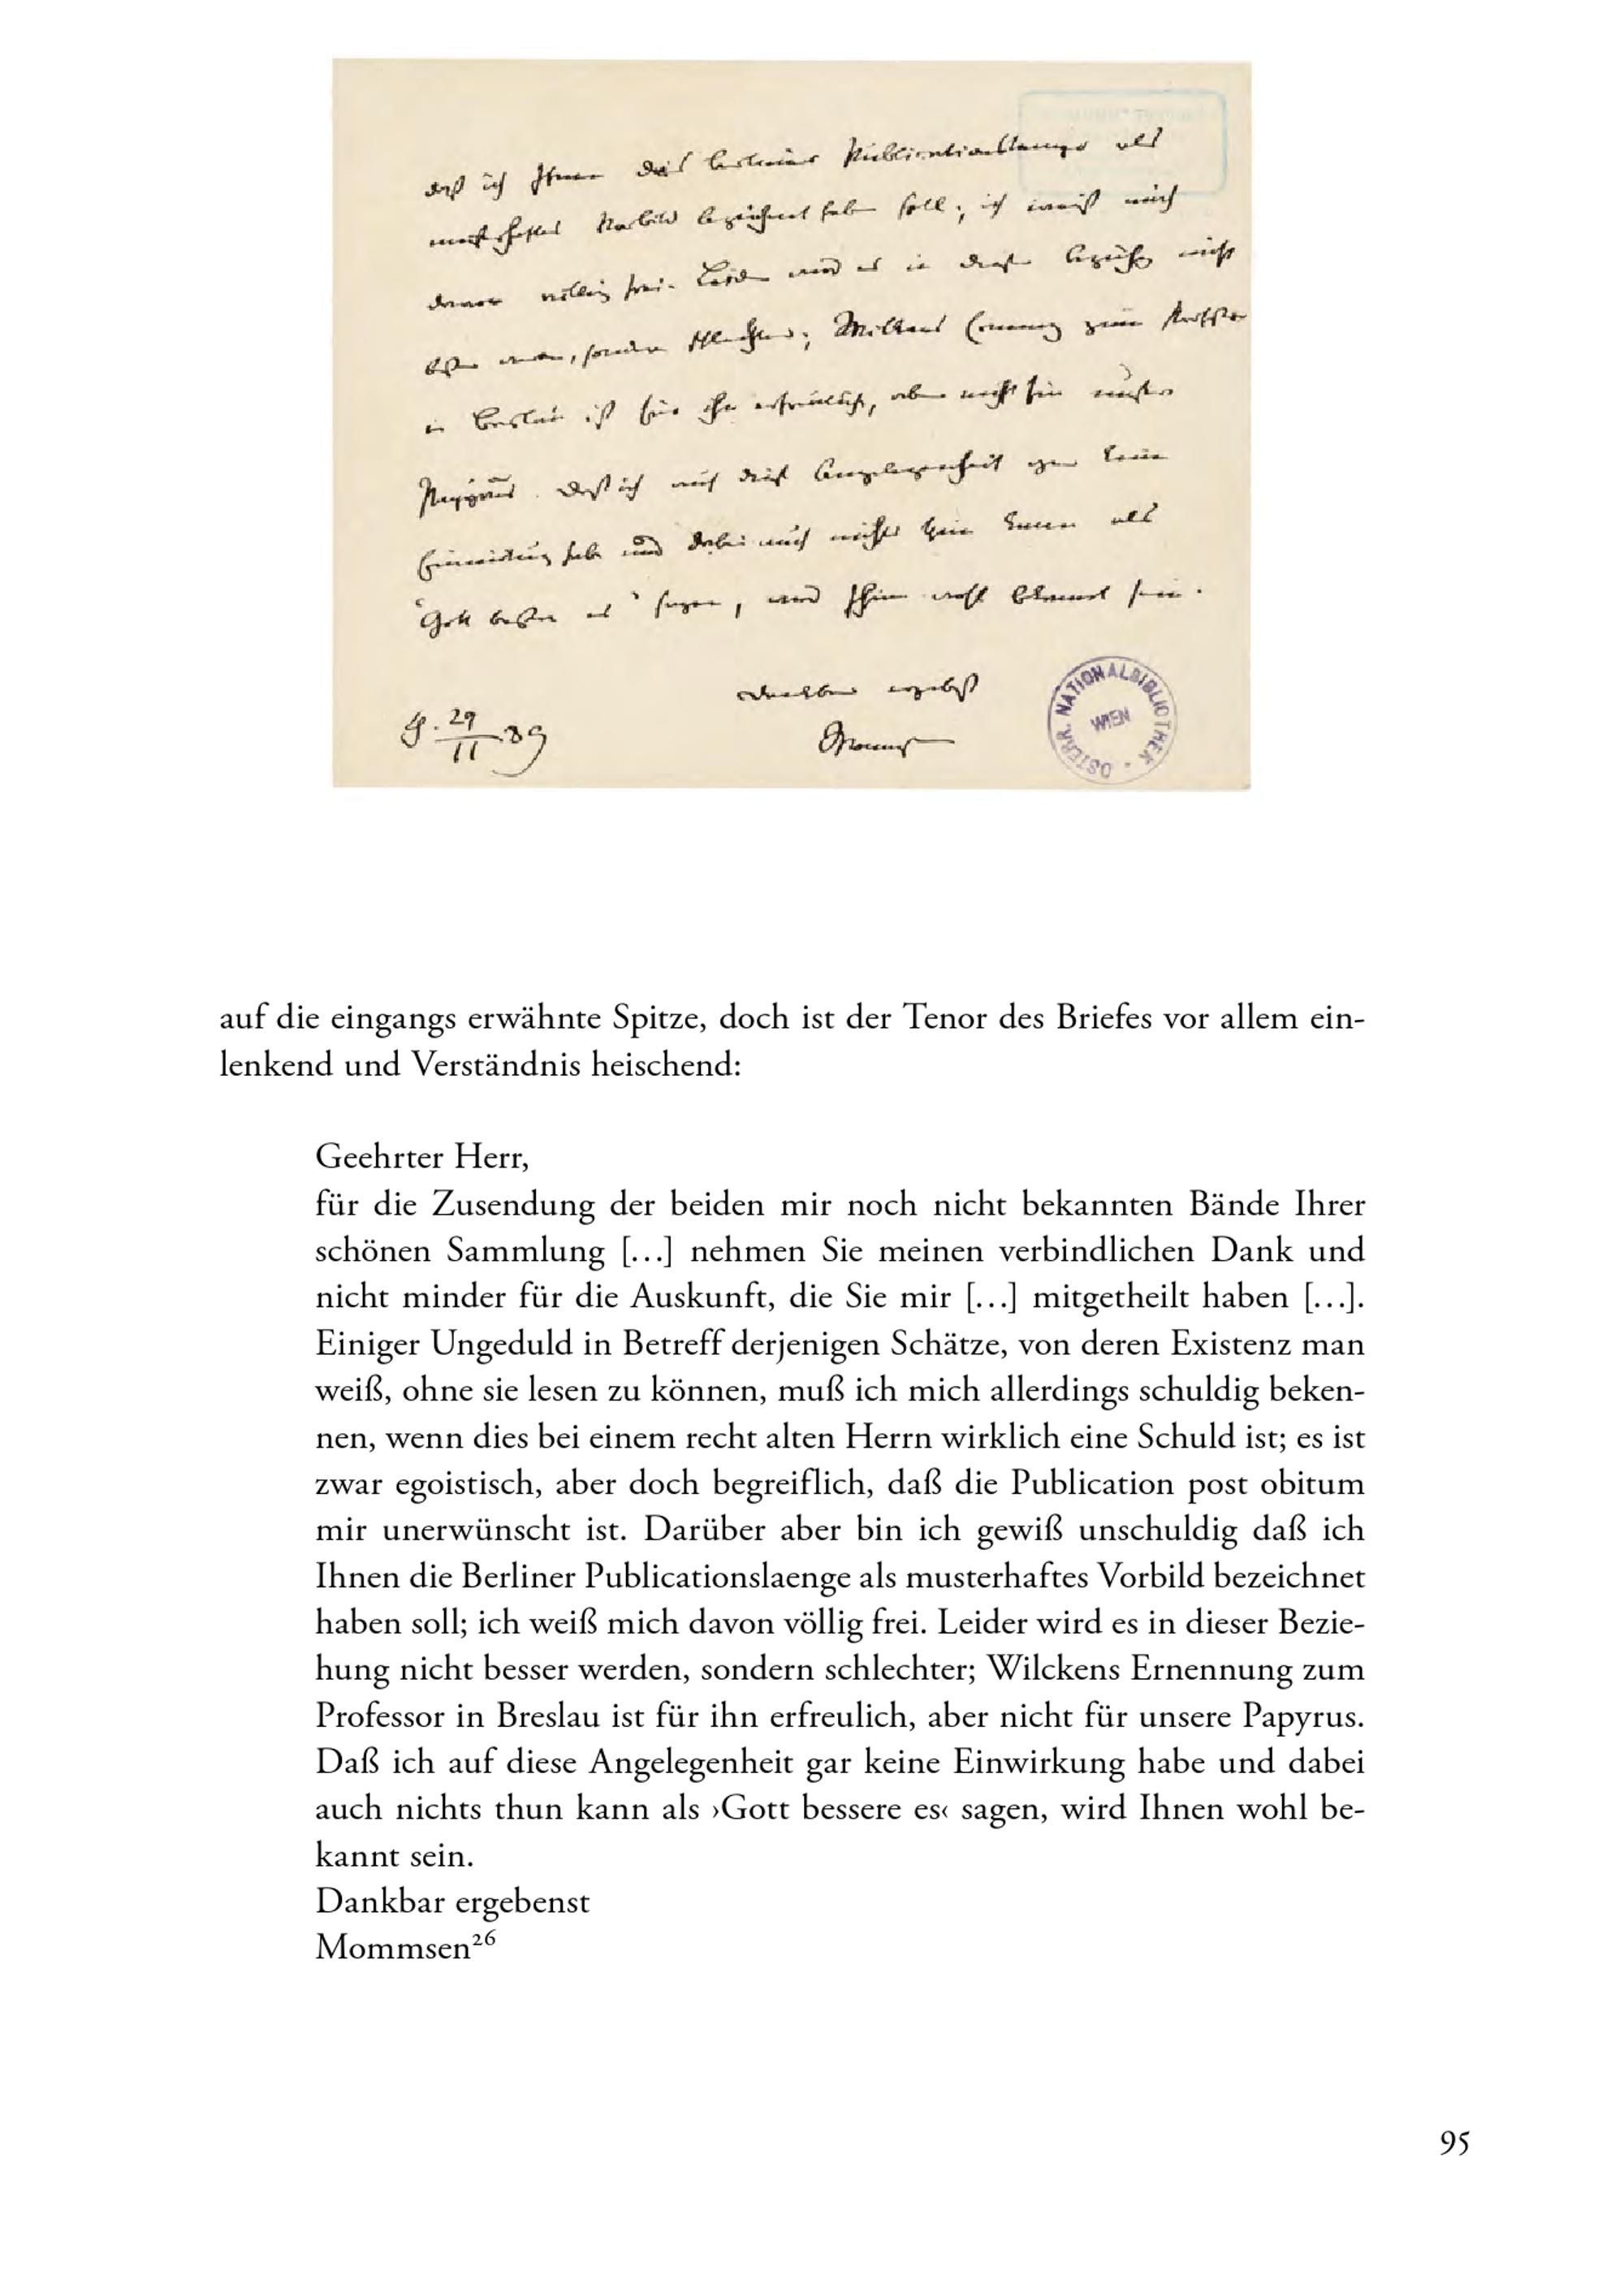 daß ich Ihnen die Berliner Publicationslaenge als
musterhaftes Vorbild bezeichnet haben soll; ich weiß mich
davon völlig frei. Leider wird es in dieser Beziehung nicht
besser werden, sondern schlechter; Wilckens Ernennung zum Professor
in Breslau ist für ihn erfreulich, aber nicht für unsere
Papyrus. Daß ich auf diese Angelegenheit gar keine
Einwirkung habe und dabei auch nichts thun kann als
"Gott bessere es" sagen, wird Ihnen wohl bekannt sein.
Dankbar ergebenst
29/11 89
Mommsen
ÖSTERR. NATIONALBIBLIOTHEK
WIEN
auf die eingangs erwähnte Spitze, doch ist der Tenor des Briefes vor allem ein-
lenkend und Verständnis heischend:
Geehrter Herr,
für die Zusendung der beiden mir noch nicht bekannten Bände Ihrer
schönen Sammlung […] nehmen Sie meinen verbindlichen Dank und
nicht minder für die Auskunft, die Sie mir […] mitgetheilt haben […].
Einiger Ungeduld in Betreff derjenigen Schätze, von deren Existenz man
weiß, ohne sie lesen zu können, muß ich mich allerdings schuldig beken-
nen, wenn dies bei einem recht alten Herrn wirklich eine Schuld ist; es ist
zwar egoistisch, aber doch begreiflich, daß die Publication post obitum
mir unerwünscht ist. Darüber aber bin ich gewiß unschuldig daß ich
Ihnen die Berliner Publicationslaenge als musterhaftes Vorbild bezeichnet
haben soll; ich weiß mich davon völlig frei. Leider wird es in dieser Bezie-
hung nicht besser werden, sondern schlechter; Wilckens Ernennung zum
Professor in Breslau ist für ihn erfreulich, aber nicht für unsere Papyrus.
Daß ich auf diese Angelegenheit gar keine Einwirkung habe und dabei
auch nichts thun kann als ›Gott bessere es‹ sagen, wird Ihnen wohl be-
kannt sein.
Dankbar ergebenst
Mommsen²⁶
95